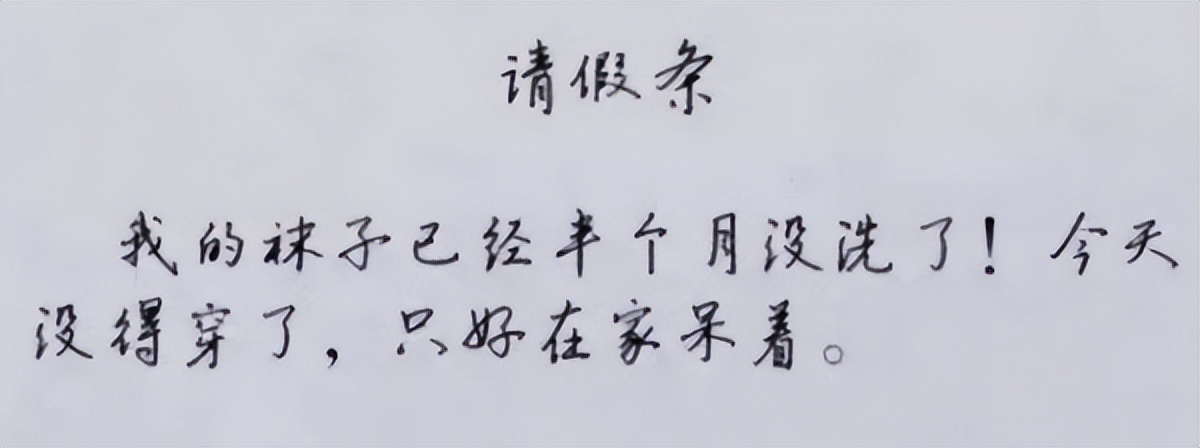 请假条
我的袜子已经半个月没洗了！今天
没得穿了，只好在家呆着。